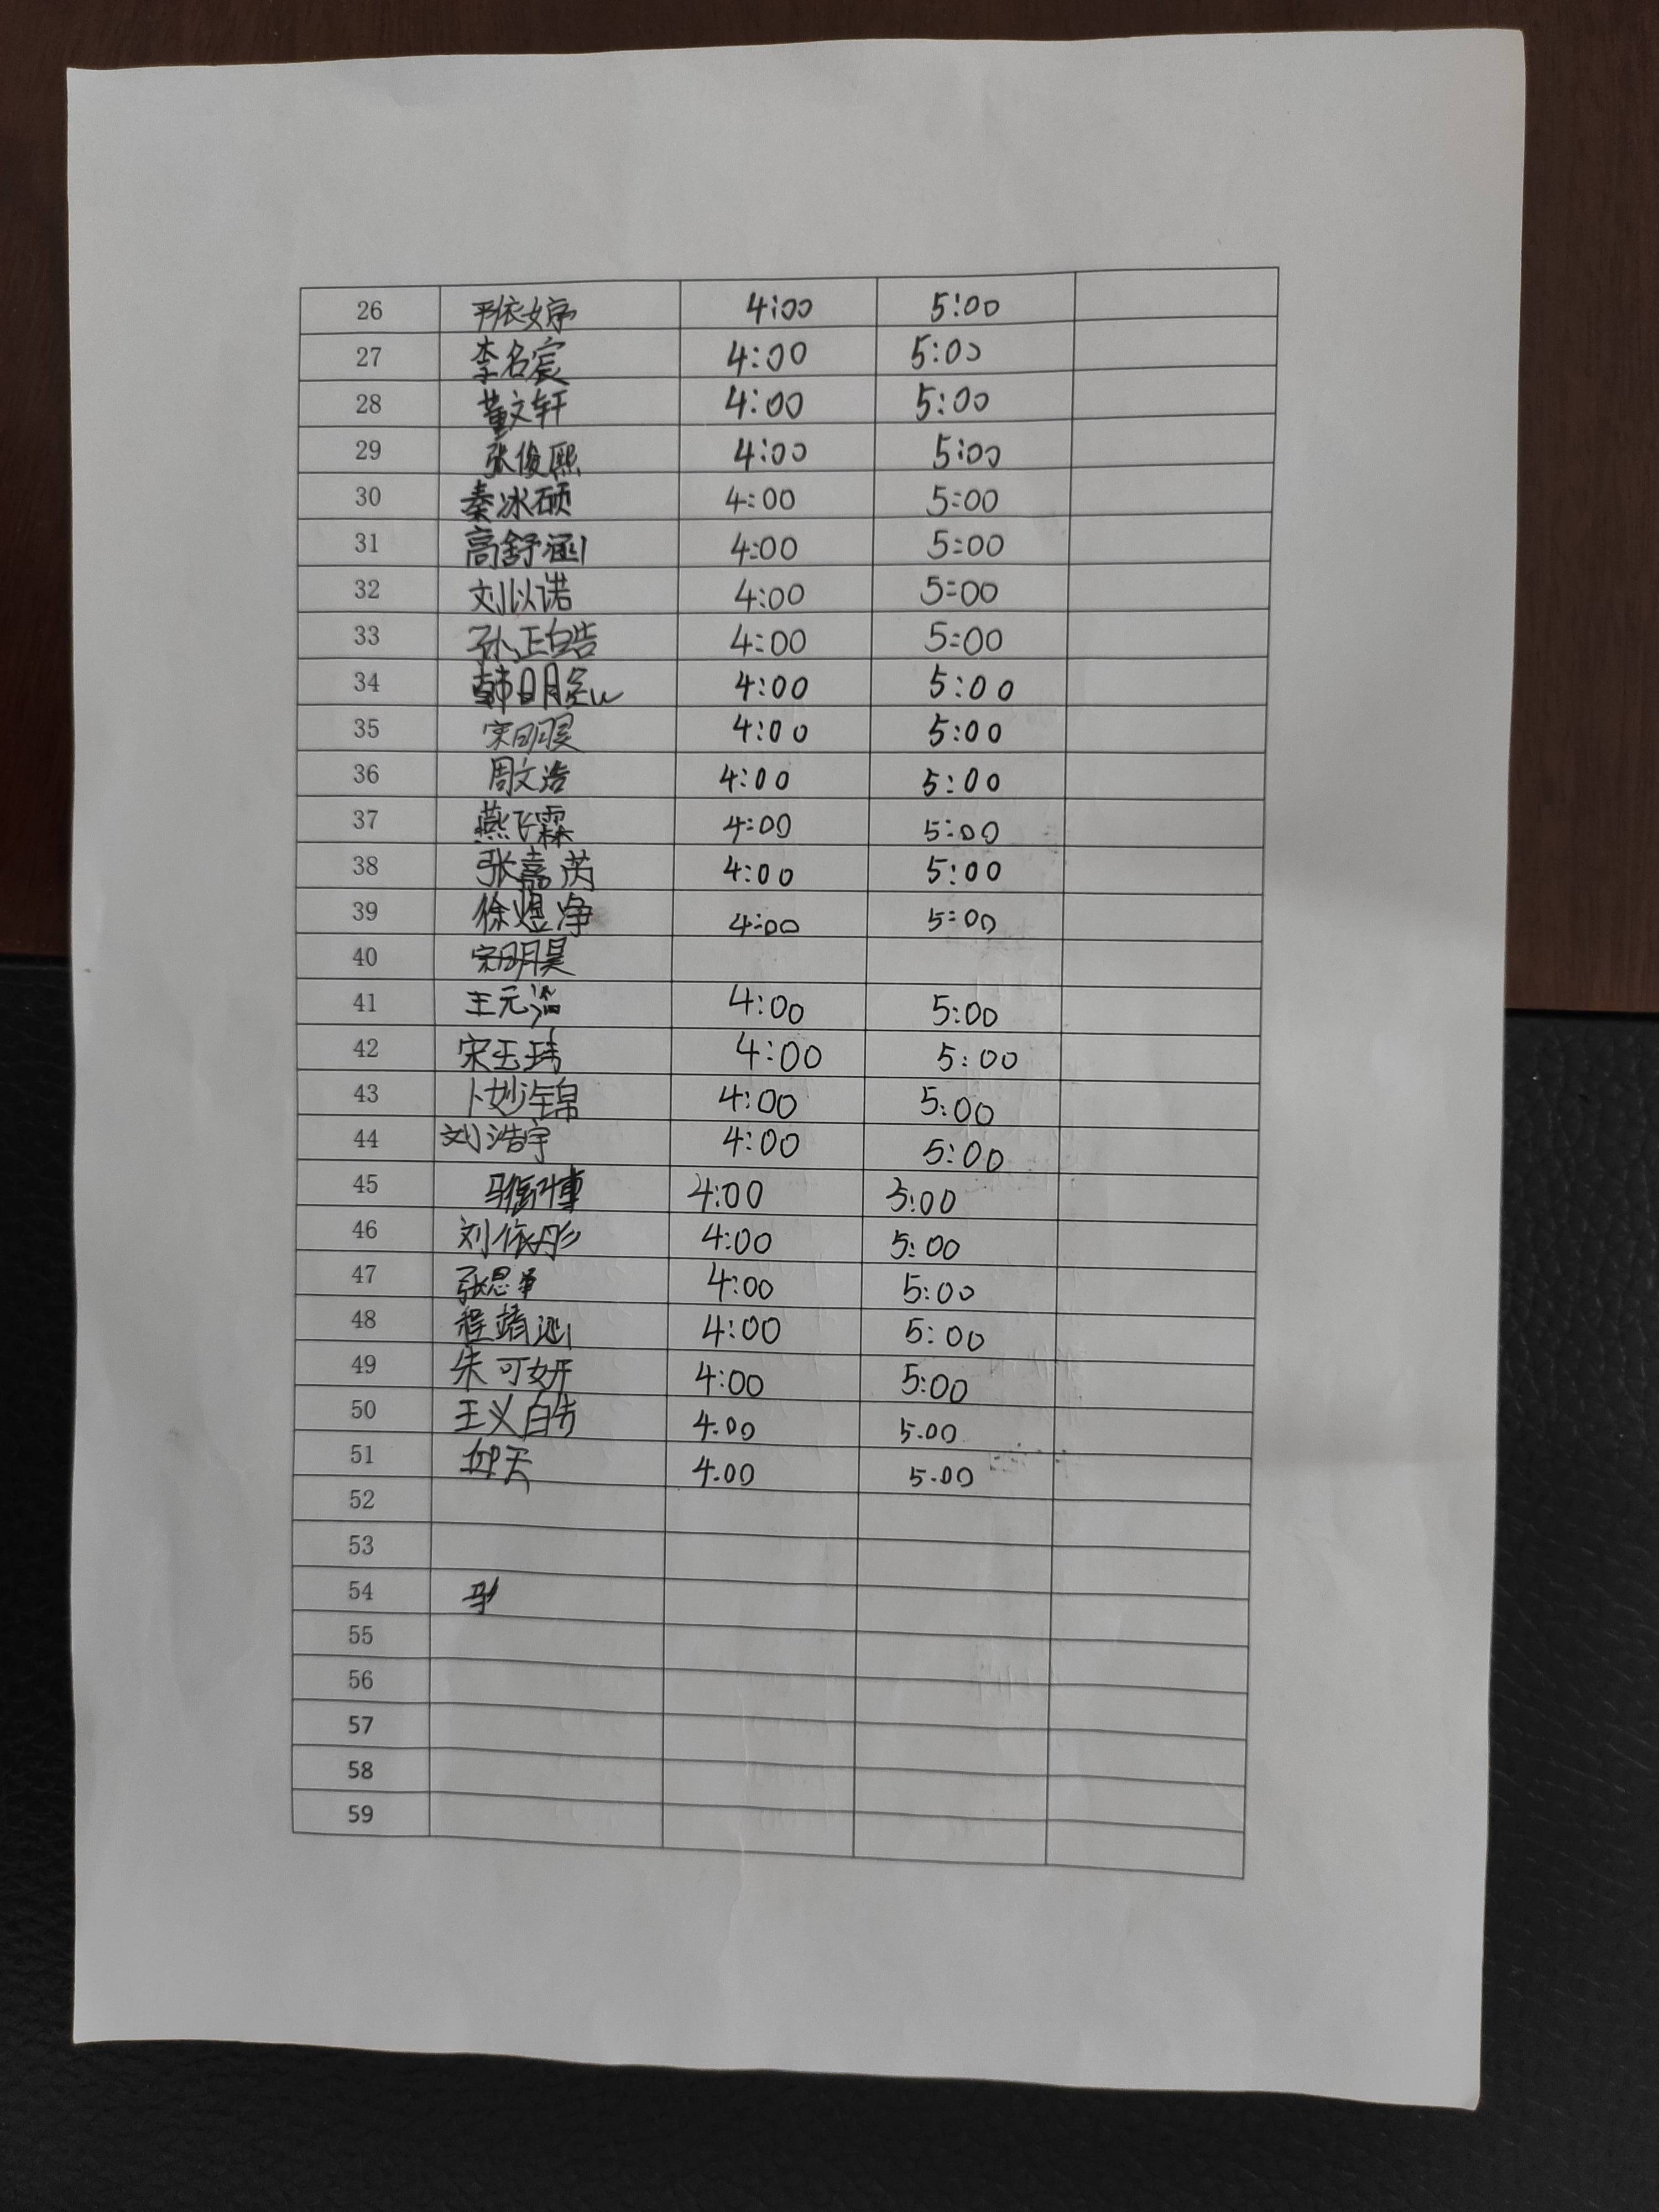 26 4:00 5:00
27 李名宸 4:00 5:00
28 董文轩 4:00 5:00
29 张俊熙 4:00 5:00
30 秦冰硕 4:00 5:00
31 高舒涵 4:00 5:00
32 刘以诺 4:00 5:00
33 孙正皓 4:00 5:00
34 韩明 4:00 5:00
35 宋明昊 4:00 5:00
36 周文浩 4:00 5:00
37 燕飞霖 4:00 5:00
38 张嘉芮 4:00 5:00
39 徐煜净 4:00 5:00
40 宋明昊
41 王元 4:00 5:00
42 宋玉玮 4:00 5:00
43 卜妙锦 4:00 5:00
44 刘浩宇 4:00 5:00
45 马 博 4:00 5:00
46 刘依彤 4:00 5:00
47 张思 4:00 5:00
48 程靖 4:00 5:00
49 朱可妍 4:00 5:00
50 王义皓 4.00 5.00
51 仰天 4.00 5.00
52
53
54
55
56
57
58
59